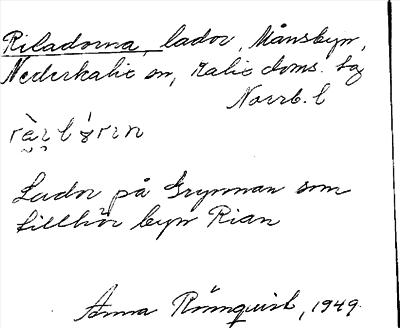 Riladorna, lador, Månsbyn,
Nederkalix sn, Kalix doms. sag
Norrb. l
Lador på Grynnan som
tillhör byn Rian
Anna Rönnquist, 1949.